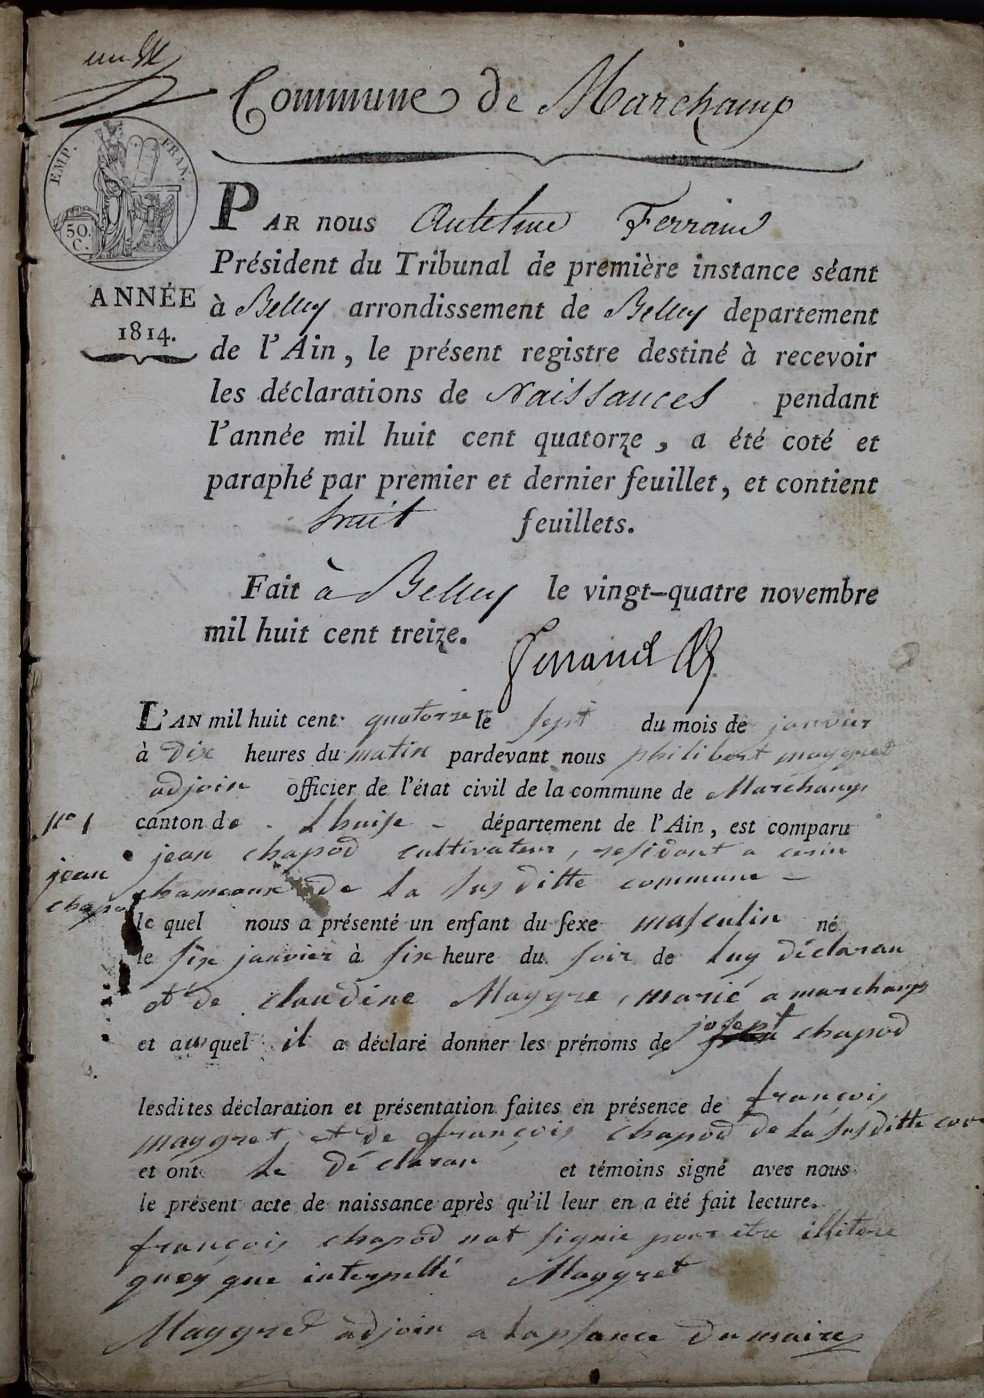 Commune de Marchamp
EMP. FRAN.
50. C.
ANNÉE
1814.
PAR nous Antelme Ferrand
Président du Tribunal de première instance séant
à Belley arrondissement de Belley departement
de l'Ain, le présent registre destiné à recevoir
les déclarations de Naissances pendant
l'année mil huit cent quatorze, a été coté et
paraphé par premier et dernier feuillet, et contient
huit feuillets.
Fait à Belley le vingt-quatre novembre
mil huit cent treize.
Ferrand
L'AN mil huit cent quatorze le sept du mois de janvier
à Dix heures du matin pardevant nous philibert maygret
adjoin officier de l'état civil de la commune de Marchamp
canton de Lhuise département de l'Ain, est comparu
No 1
jean
chapod
jean chapod cultivateur, résidant a cerin
hameaux de La susditte commune
le quel nous a présenté un enfant du sexe masculin né
le six janvier à six heure du soir de Luy déclaran
et de claudine Maygre, marié a marchamp
et auquel il a déclaré donner les prénoms de josept chapod
lesdites déclaration et présentation faites en présence de françois
maygret, et de françois chapod de La susditte com
et ont Le Déclaran et témoins signé avec nous
le présent acte de naissance après qu'il leur en a été fait lecture.
françois chapod nat signie pour etre illitere
quoy que interpellé Maygret
Maygret adjoin a Lapsance du maire